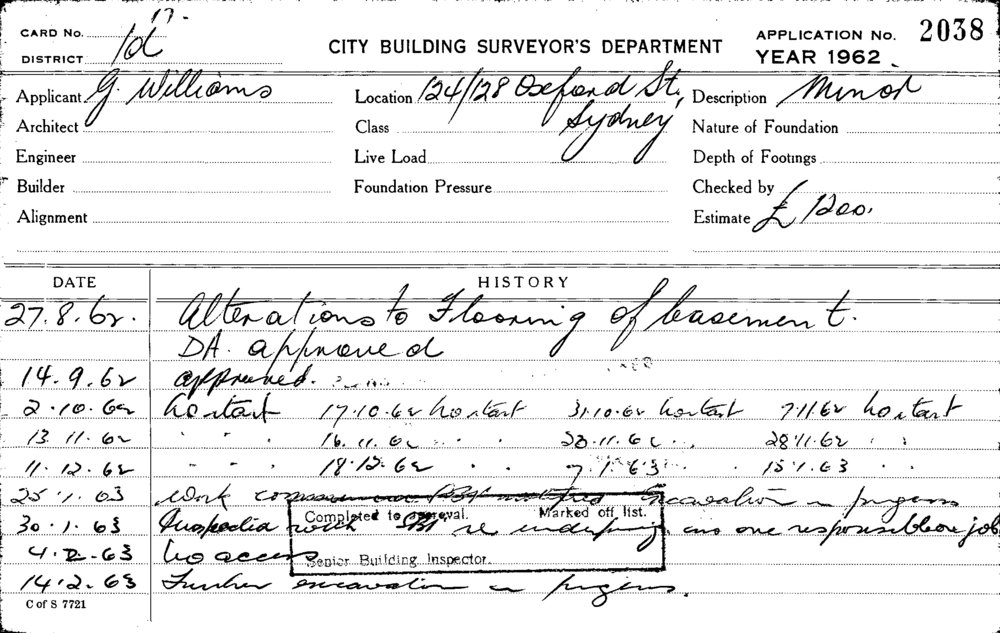 CARD No. 17.
DISTRICT 1d
CITY BUILDING SURVEYOR'S DEPARTMENT
APPLICATION No. 2038
YEAR 1962
Applicant G. Williams
Location 124/128 Oxford St, Sydney
Description Minor
Architect
Class
Nature of Foundation
Engineer
Live Load
Depth of Footings
Builder
Foundation Pressure
Checked by
Alignment
Estimate £1200.
DATE HISTORY
27.8.62. Alterations to Flooring of basement.
DA. approved
14.9.62 approved.
2.10.62 No start 17.10.62 No start 31.10.62 No start 7.11.62 No start
13.11.62 " " 16.11.62 " " 23.11.62 " " 28.11.62 " "
11.12.62 " " 18.12.62 " " 7.1.63 " " 15.1.63 "
25.1.63 Work commenced excavation in progress
30.1.63 Inspection with re underpinning as one responsible on job
4.2.63 No access
14.2.63 Further excavation in progress.
Completed to approval. Marked off list.
Senior Building Inspector.
C of S 7721